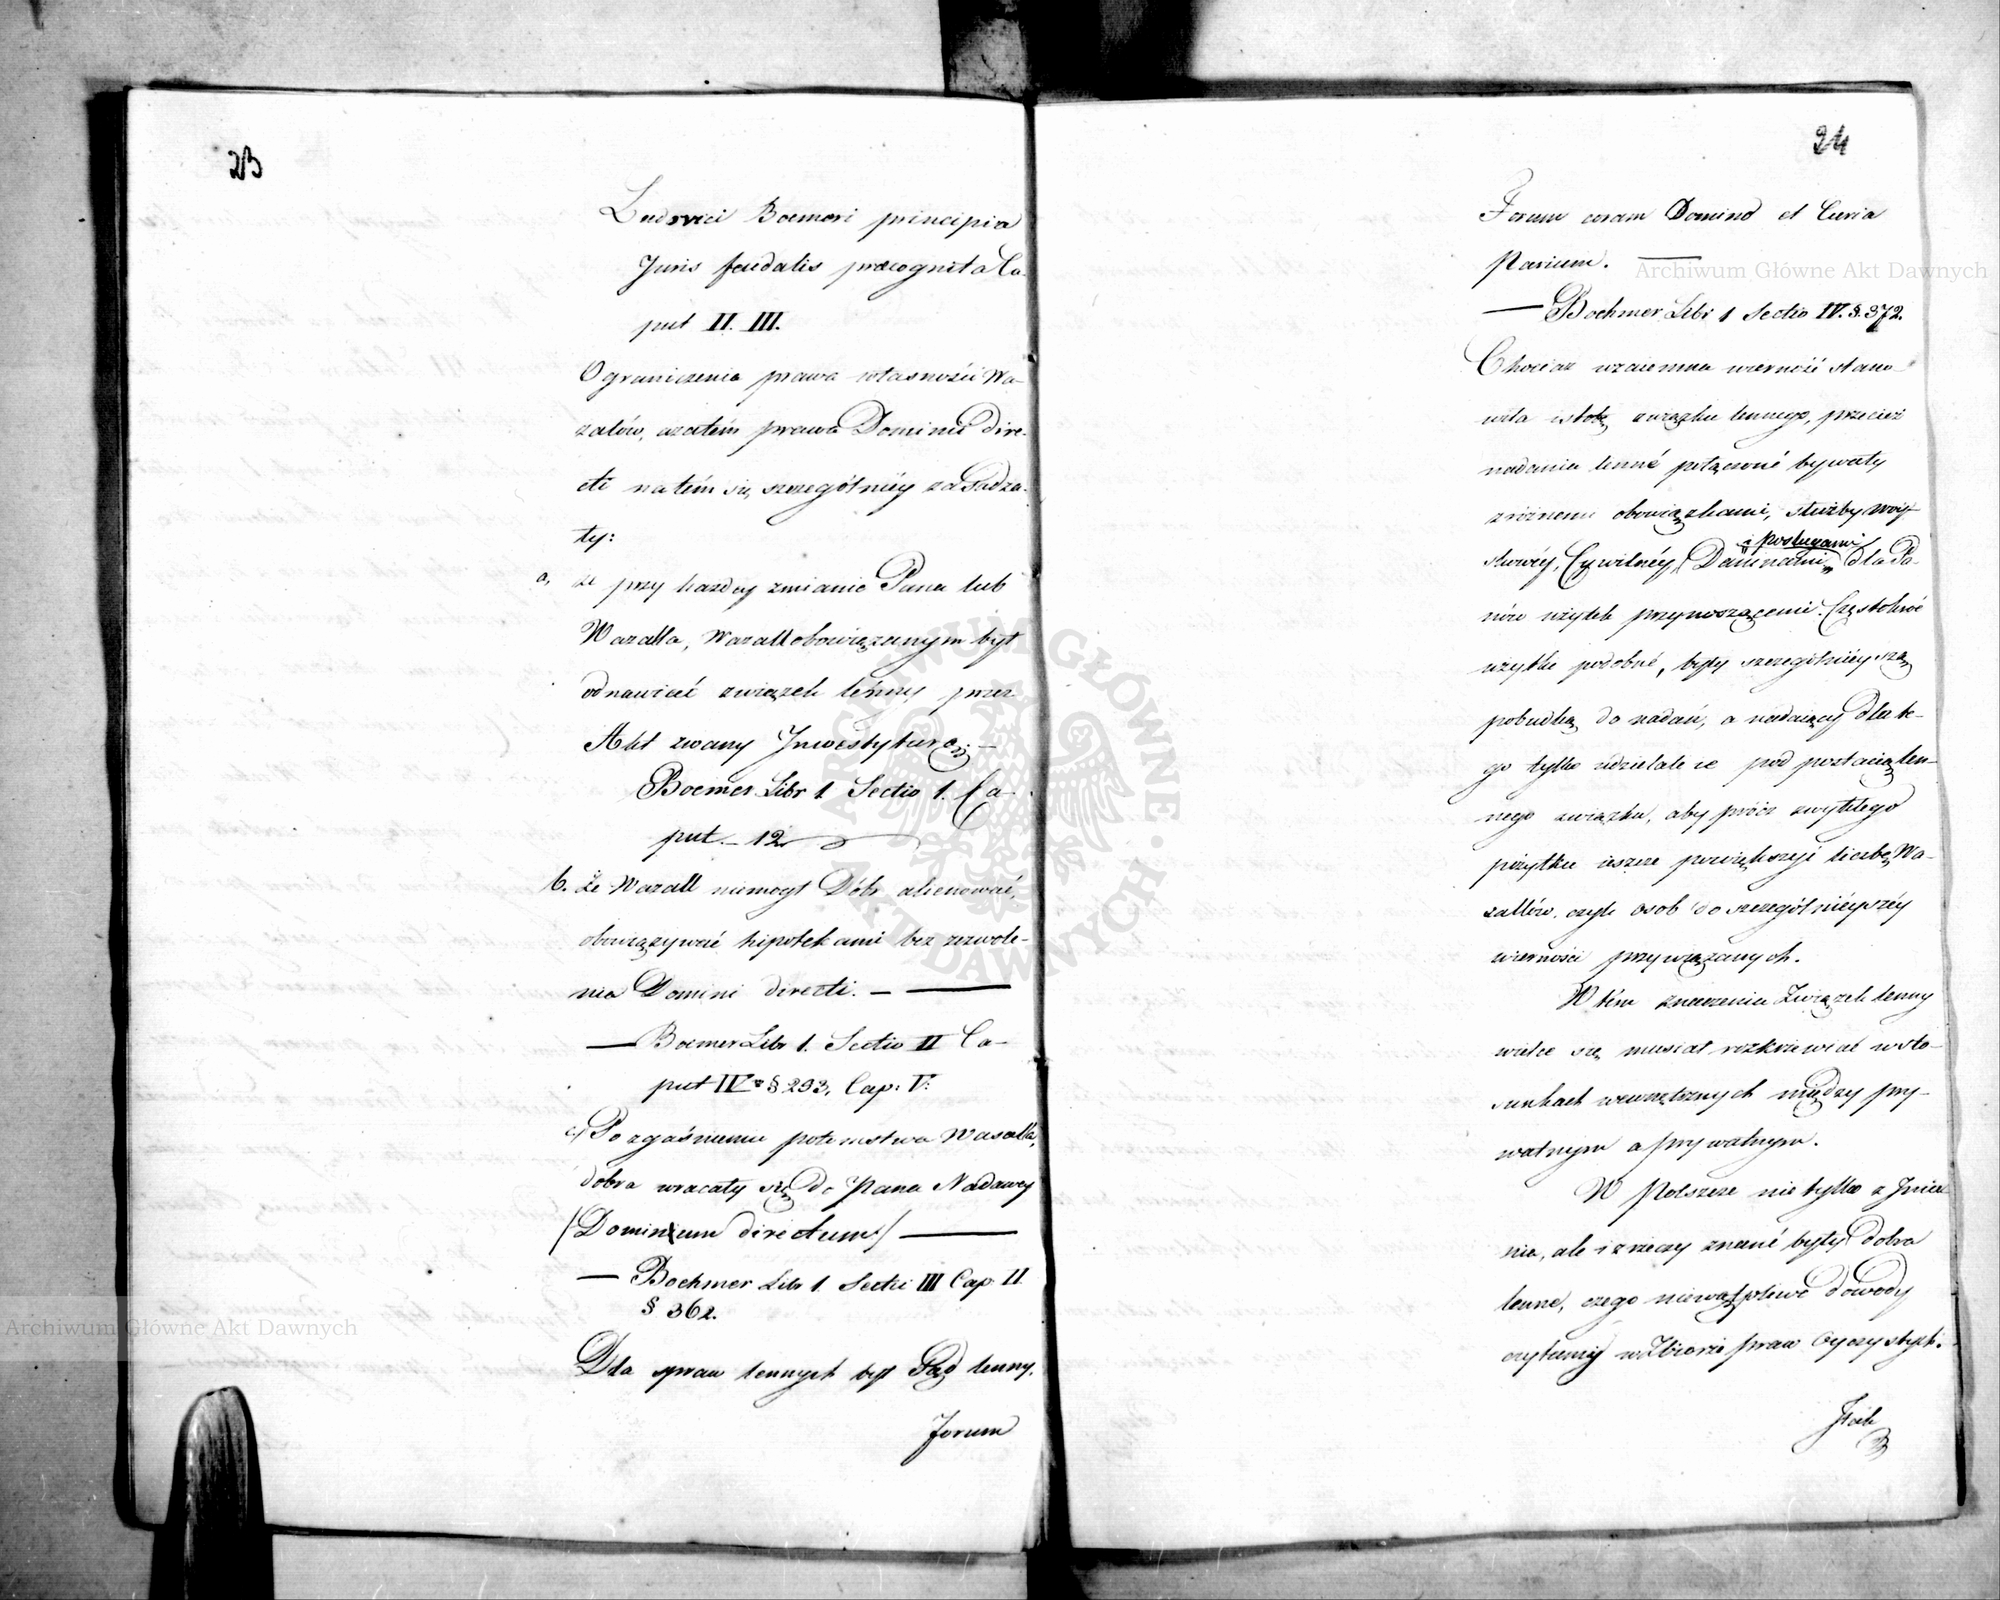 23
Ludovici Boemeri principia
Juris feudalis præcognita Ca-
put II. III.
Ograniczenia prawa własności Wa-
zalów, azatém prawa Domini dire-
cti na tém się szczegolniéy zasadza-
ły:
a, że przy każdey zmianie Pana lub
Wazalla, Wazall obowiązanym był
odnawiać związek lenny, przez
Akt zwany Inwestyturą. —
Boemer Libr 1. Sectio 1. Ca-
put. 12
b. Że Wazall niemogł Dóbr alienować,
obowiązywać hipotekami bez zezwole-
nia Domini directi. — —
— Boemer Libr 1. Sectio II Ca-
put IV § 293, Cap: V:
c) Po zgaśnieniu potomstwa Wasalla,
dobra wracały się do Pana Nadawcy
/Dominium directum/ —
— Boehmer Libr 1. Sectii III Cap. II
§ 362.
Dla spraw lennych był Sąd lenny,
Forum
24
Forum coram Domino et Curia
Parium. —
— Boehmer Libr 1 Sectio IV. §. 372.
Chociaż wzaiemna wierność stano-
wiła istotę związku lennego, przecież
nadania lenné połączoné bywały
z różnemi obowiązkami, służby woy-
skowéy, Cywilnéy, Daninami i posługami dla Pa-
nów użytek przynoszącemi. Częstokroć
użytki podobné, były szczególniéyszą
pobudką do nadań, a nadaiący dla te-
go tylko udzielał ie pod postacią len-
nego związku, aby prócz zwykłego
pożytku ieszcze powiększyć liczbę Wa-
zallów, czyli osob do szczególniéyszéy
wierności przywiązanych.
W tém znaczeniu Związek lenny
wielce się musiał rozkrzewiać w sto-
sunkach wewnętrznych między pry-
watnym a prywatnym.
W Polszcze nie tylko z Imie-
nia, ale i z rzeczy znané były dobra
lenne, czego niewątpliwé dowody
czytamy w Zbiorze praw Oyczystych.
Jak
Archiwum Główne Akt Dawnych
Archiwum Główne Akt Dawnych
ARCHIWUM GŁÓWNE · AKT DAWNYCH ·